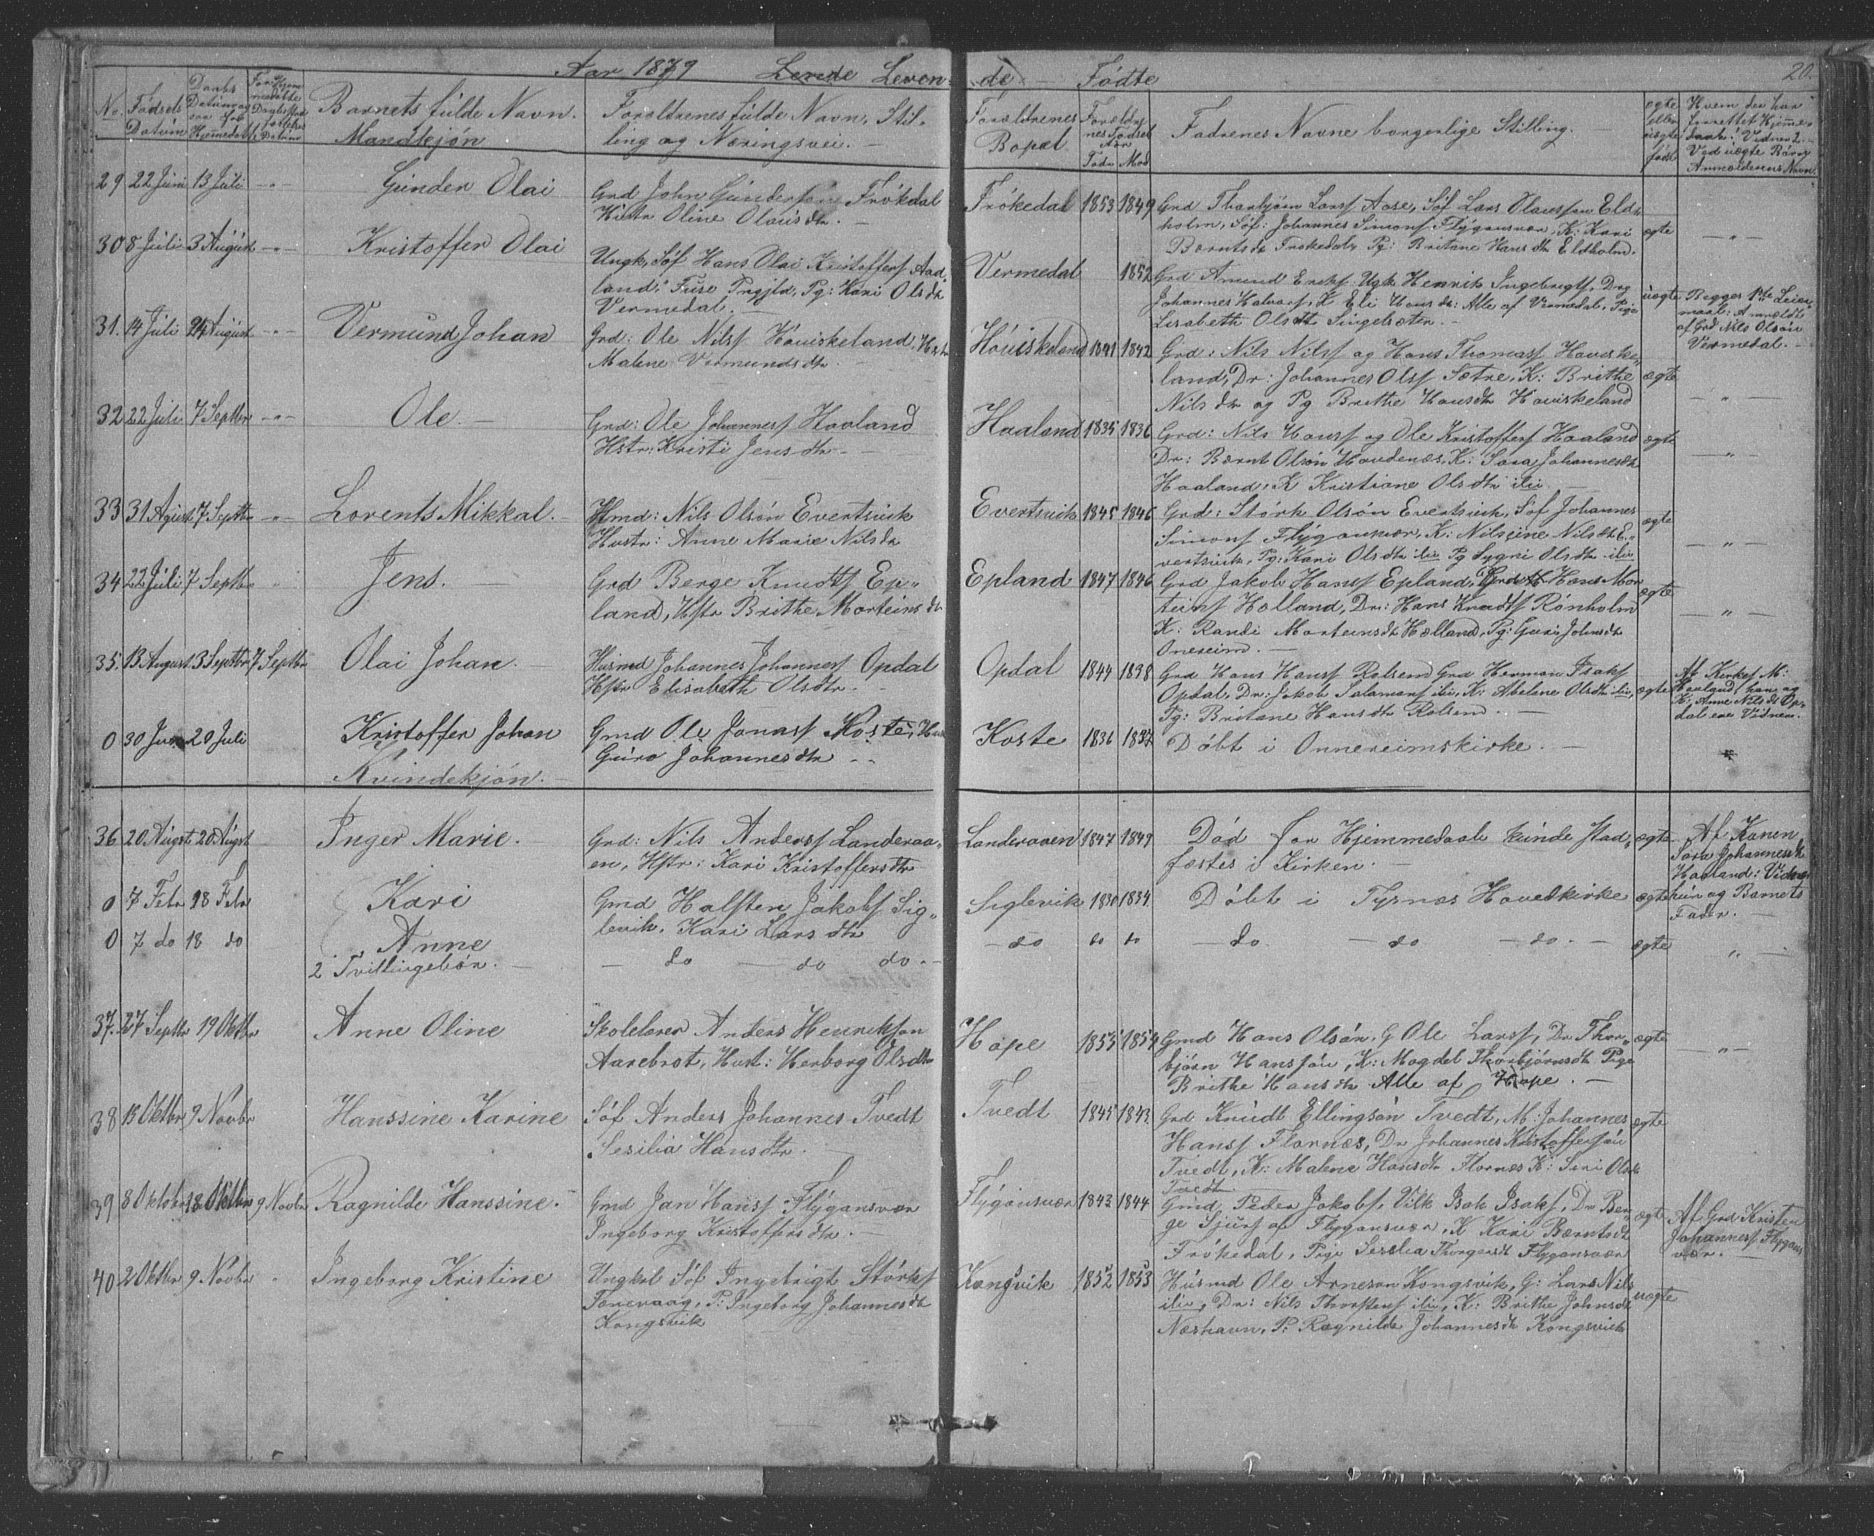 Aar 1879 Levende Fødte
20.
No. Fødsels Datum
Barnets fulde Navn. Mandkjøn
Forældrenes fulde Navn, Stilling og Næringsvei. —
Forældrenes Bopæl
Fadrenes Navne borgerlige Stilling.
29 22 Juni 13 Juli
Gunder Olai
Grd John Gunderson Frøkdal
Hustr Oline Olausdtr. —
Frøkedal 1853 1849
Grd Tharbjørn Larss Aase, Søf Lars Olaussen Eld-
holm, Søf: Johannes Simons Flygansvær, K: Kari
Bærntsdt Frøkedal, Pg: Britane Hansdtr Eldholm.
ægte
30 8 Juli 3 August
Kristoffer Olai
Ungk, Søf Hans Olai Kristoffers Aad-
land, Fuse Prgjld, Pg: Kari Olsdtr
Vermedal. —
Vermedal 1852
Grd Amund Eriks Ugk Henrik Ingebrigts, Drg
Johannes Halvors, K Eli Hansdtr Alle af Vermedal, Pige
Lisabeth Olsdtr Singelsæter. —
uægte
Begges 1ste Leier-
maal: Anmeldt
af Grd Nils Olsøn
Vermedal. —
31. 14 Juli 24 August
Vermund Johan
Grd: Ole Nilss Høviskeland, Hstr
Malene Vermundsdtr
Høviskeland 1841 1842
Grd: Nils Nilss og Hans Thomass Høviske-
land, Dr: Johannes Olss Sætre, K: Brithe
Nilsdtr og Pg Brithe Hansdtr Høviskeland
ægte
32 22 Juli 7 Septbr
Ole. —
Grd: Ole Johanness Haaland
Hstr: Kristi Jensdtr —
Haaland 1835 1836
Grd: Nils Hanss og Ole Kristoffers Haaland
Dr: Bærnt Olsøn Havdenæs, K: Sara Johannesdt
Haaland, K Kristiane Olsdtr ibi —
ægte
33 31 Agust 7 Septbr
Lorents Mikkal. —
Hmd: Nils Olsøn Evertsvik
Hustr: Anne Marie Nilsdtr
Evertsvik 1845 1846
Grd: Størk Olsøn Evertsvik, Søf Johannes
Simons Flygansvær, K: Nilsine Nilsdt E-
vertsvik, Pg: Kari Olsdtr ibi Pg Sygni Olsdtr ibi
ægte
34 22 Juli 7 Septbr
Jens. —
Grd Berge Knudts Ep-
land, Hstr Brithe Morteinsdtr
Epland 1847 1846
Grd Jakob Hanss Epland, Grd Hans Mor-
teins Hælland, Dr: Hans Knudts Rønholm
K: Randi Morteinsdt Hælland, Pg: Guri Johnsdt
Oneseim. —
ægte
35. 13 August 3 Septbr 7 Septbr
Olai Johan.
Husmd Johannes Johanness Opdal
Hstr Elisabeth Olsdtr. —
Opdal 1844 1838
Grd Hans Hanss Rolsend Grd Herman Isaks
Opdal, Dr: Jakob Salamons ibi, K: Abelene Olsdtr ibi,
Pg: Britane Hansdtr Rolsend. —
ægte
Af Kirkes M:
Haaland, han og
K: Anne Nilsdt Op-
dal ere Vidner.
0 30 Jun 20 Juli
Kristoffer Johan
Gmd Ole Jonass Koste, Hus
Guro Johannesdtr
Koste 1836 1837
Døbt i Onnereimskirke. —
Kvindekjøn. —
36 20 Augst 20 Augst
Inger Marie.
Grd: Nils Anderss Landeraa-
en, Hstr: Kari Kristoffersdtr
Landeraaen 1847 1849
Død før Hjemmedaab kunde stad-
fæstes i Kirken. —
ægte
Af Konen
Sara Johannesdt
Haaland: Vidner
hun og Barnets
Fader. —
0 7 Febr 18 Febr
Kari
Gmd Halsten Jakobs Sig-
levik, Kari Larsdtr
Siglevik 1830 1834
Døbt i Tysnæs Hovedkirke
ægte
0 7 do 18 do
Anne
2 Tvillingebørn. —
— do — do do. —
— do do do
— do. — do — do. —
ægte
37. 27 Septbr 19 Oktbr
Anne Oline
Skolelærer Anders Henrikson
Aarebrot, Hust: Herborg Olsdtr
Hope 1853 1854
Gmd Hans Olsøn, G Ole Larss, Dr: Thor-
bjørn Hanssøn, K: Magdel Thorbjørnsdt Pige
Brithe Hansdtr Alle af Hope. —
ægte
38 13 Oktbr 9 Novbr
Hanssine Karine
Søf Anders Johannes Tvedt
Sesilia Hansdtr. —
Tvedt 1845 1843
Grd Knudt Ellingsøn Tvedt, M: Johannes
Hanss Flornæs, Dr Johannes Kristoffersøn
Tvedt, K: Malene Hansdtr Flornæs K: Siri Olsdt
Tvedt
ægte
39 8 Oktobr 18 Oktbr 9 Novbr
Ragnilde Hanssine.
Gmd Jan Hanss Flygansvær
Ingeborg Kristoffersdtr. —
Flygansvær 1843 1844
Gmd Peder Jakobs, Vilk Isak Isaks, Dr Ber-
ge Sjurs af Flygansvær, K Kari Bærntsdt
Frøkedal, Pige Sesilia Thorgersdt Flygansvær
ægte
Af Grd Kristen
Johanness Flygans
vær. —
40 2 Oktbr 9 Novbr
Ingeborg Kristine
Ungkrl Søf Ingebrigt Størks
Tonevaag, P: Ingeborg Johannesdt
Kongsvik
Kongsvik 1852 1853
Husmd Ole Arneson Kongsvik, G: Lars Nils
ibi, Dr: Nils Thorstens ibi, K: Brithe Johnsdt
Næshavn, P: Ragnilde Johannesdt Kongsvik
uægte